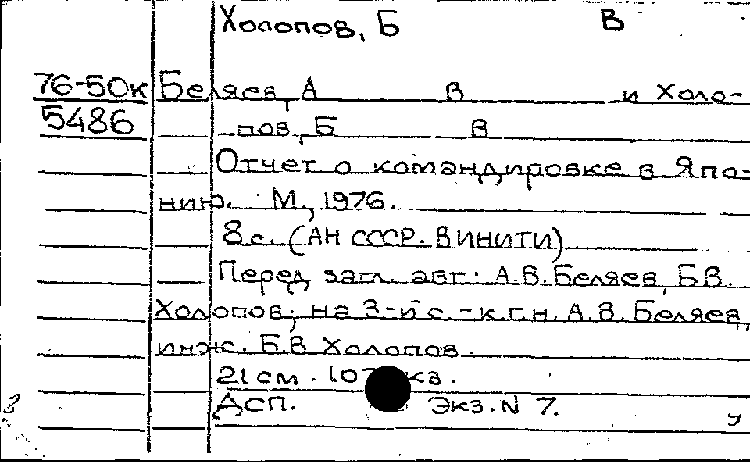 Холопов, Б В
76-50к Беляев, А В и Холо-
5486 пов, Б В
Отчет о командировке в Япо-
нию. М., 1976.
8 с. (АН СССР. ВИНИТИ)
Перед загл. авт.: А.В. Беляев, Б.В.
Холопов; на 3-й с. - к.г.н. А.В. Беляев,
инж. Б.В. Холопов.
21 см. экз.
ДСП. Экз. N 7.
у